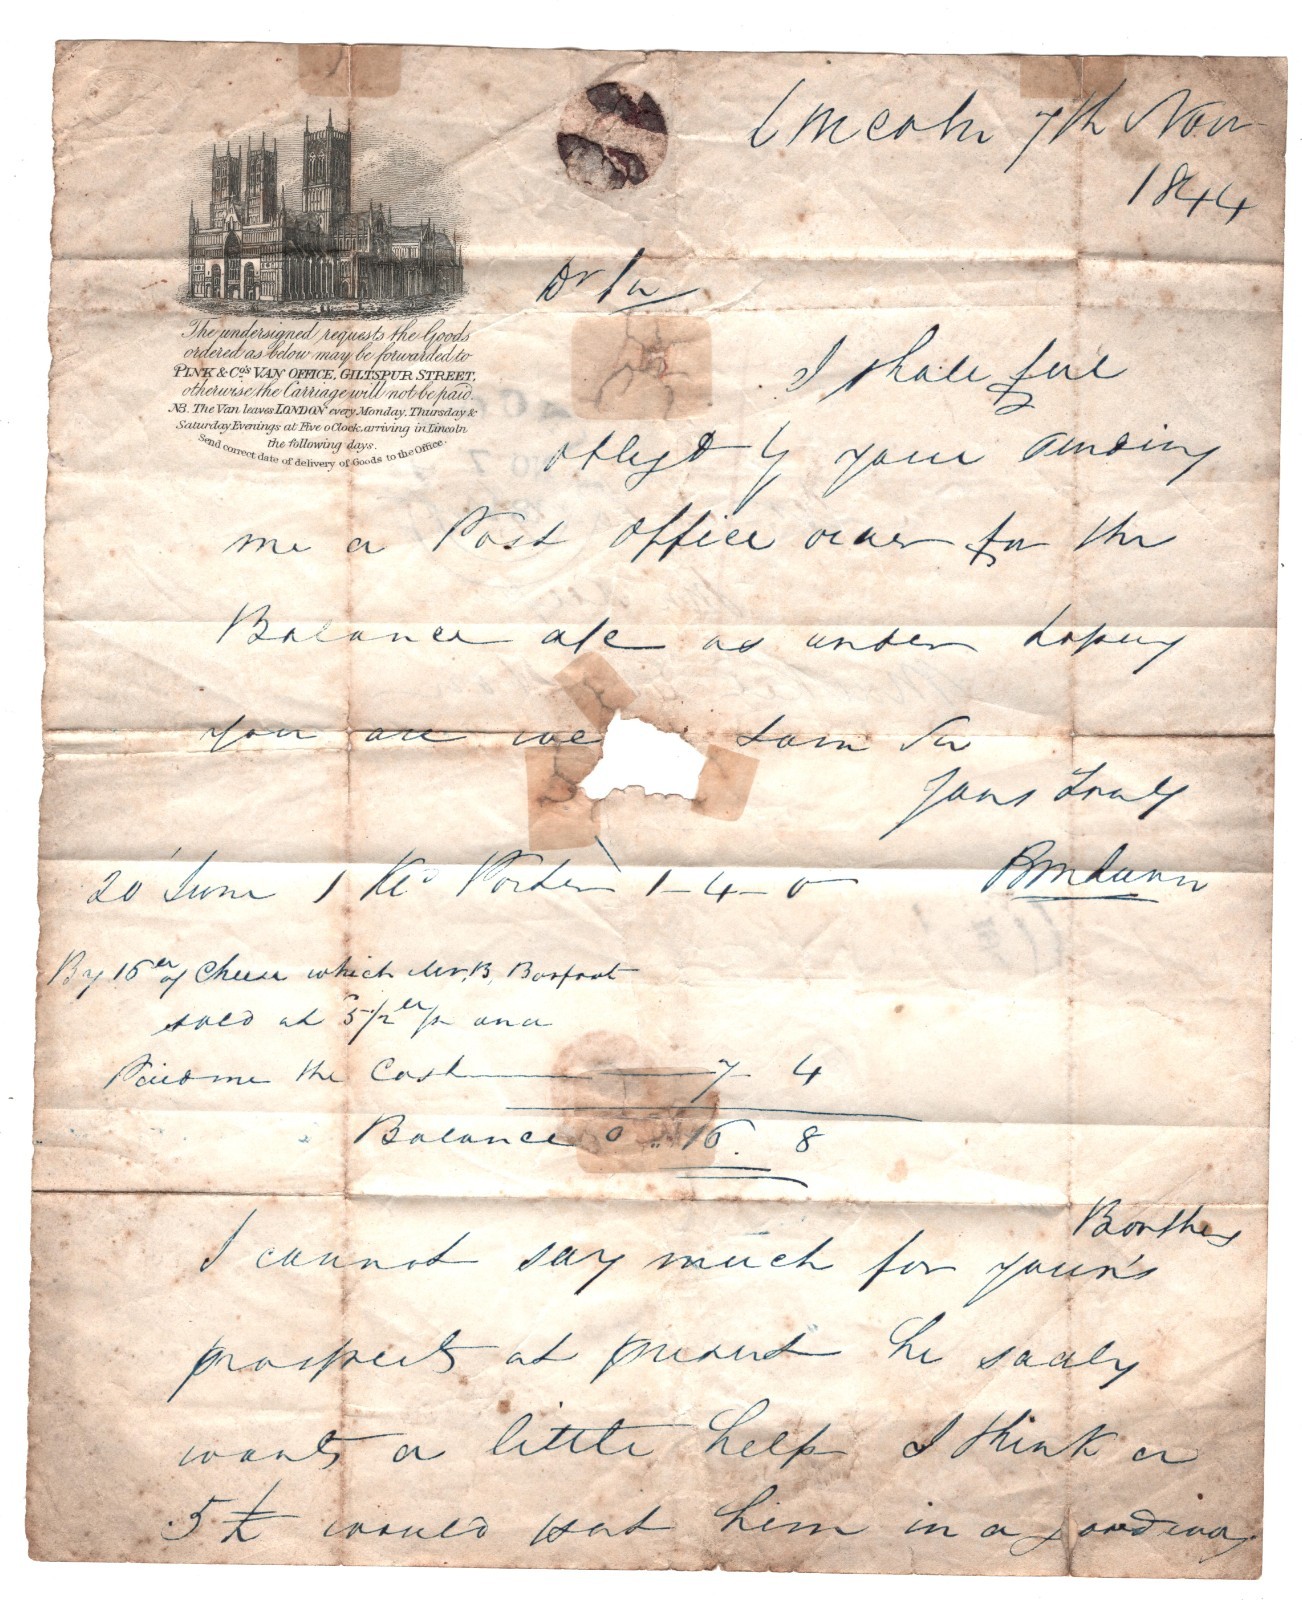 Lincoln 7th Novr
1844
The undersigned requests the Goods
ordered as below may be forwarded to
PINK & Co's VAN OFFICE, GILTSPUR STREET,
otherwise the Carriage will not be paid.
NB. The Van leaves LONDON every Monday, Thursday &
Saturday Evenings at Five o Clock, arriving in Lincoln
the following days.
Send correct date of delivery of Goods to the Office.
Dr Sir
I shall feel
obligd by your sending
me a Post Office order for the
Balance a/c as under hoping
you are we I am Sir
Yours Truly
20 June 1 Kn Porter 1-4-0
By 16 lb of Cheese which Mr. B,
sold at 5½ and
Paid me the Cash 7 4
Balance 0 .. 16. 8
I cannot say much for your Brothers
prospects at present he sadly
wants a little help I think a
5 £ would put him in a good way